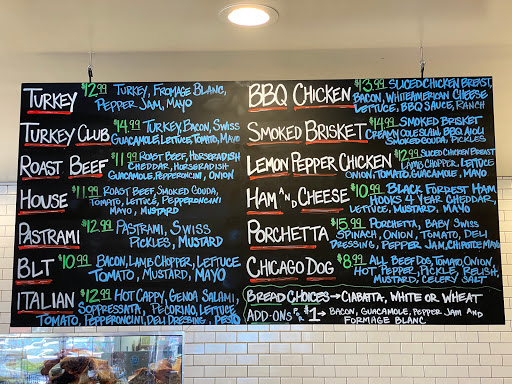 TURKEY $12.99 TURKEY, FROMAGE BLANC,
PEPPER JAM, MAYO
TURKEY CLUB $14.99 TURKEY, BACON, SWISS
GUACAMOLE, LETTUCE, TOMATO, MAYO
ROAST BEEF $11.99 ROAST BEEF, HORSERADISH
CHEDDAR, HORSERADISH
GUACAMOLE, PEPPERONCINI, ONION
HOUSE $11.99 ROAST BEEF, SMOKED GOUDA,
TOMATO, LETTUCE, PEPPERONCINI
MAYO, MUSTARD
PASTRAMI $12.99 PASTRAMI, SWISS
PICKLES, MUSTARD
BLT $10.99 BACON, LAMB CHOPPER, LETTUCE
TOMATO, MUSTARD, MAYO
ITALIAN $12.99 HOT CAPPY, GENOA SALAMI,
SOPPRESSATA, PECORINO, LETTUCE
TOMATO, PEPPERONCINI, DELI DRESSING, PESTO
BBQ CHICKEN $13.99 SLICED CHICKEN BREAST,
BACON, WHITE AMERICAN CHEESE
LETTUCE, BBQ SAUCE, RANCH
SMOKED BRISKET $14.99 SMOKED BRISKET
CREAMY COLESLAW, BBQ AIOLI
SMOKED GOUDA, PICKLES
LEMON PEPPER CHICKEN $12.99 SLICED CHICKEN BREAST
LAMB CHOPPER, LETTUCE
ONION, TOMATO, GUACAMOLE, MAYO
HAM AND CHEESE $10.99 BLACK FORREST HAM
HOOKS 4 YEAR CHEDDAR,
LETTUCE, MUSTARD, MAYO
PORCHETTA $15.99 PORCHETTA, BABY SWISS
SPINACH, ONION, TOMATO, DELI
DRESSING, PEPPER JAM, CHIPOTLE MAYO
CHICAGO DOG $8.99 ALL BEEF DOG, TOMATO, ONION,
HOT PEPPER, PICKLE, RELISH,
MUSTARD, CELERY SALT
BREAD CHOICES → CIABATTA, WHITE OR WHEAT
ADD-ONS FOR $1 → BACON, GUACAMOLE, PEPPER JAM AND
FORMAGE BLANC